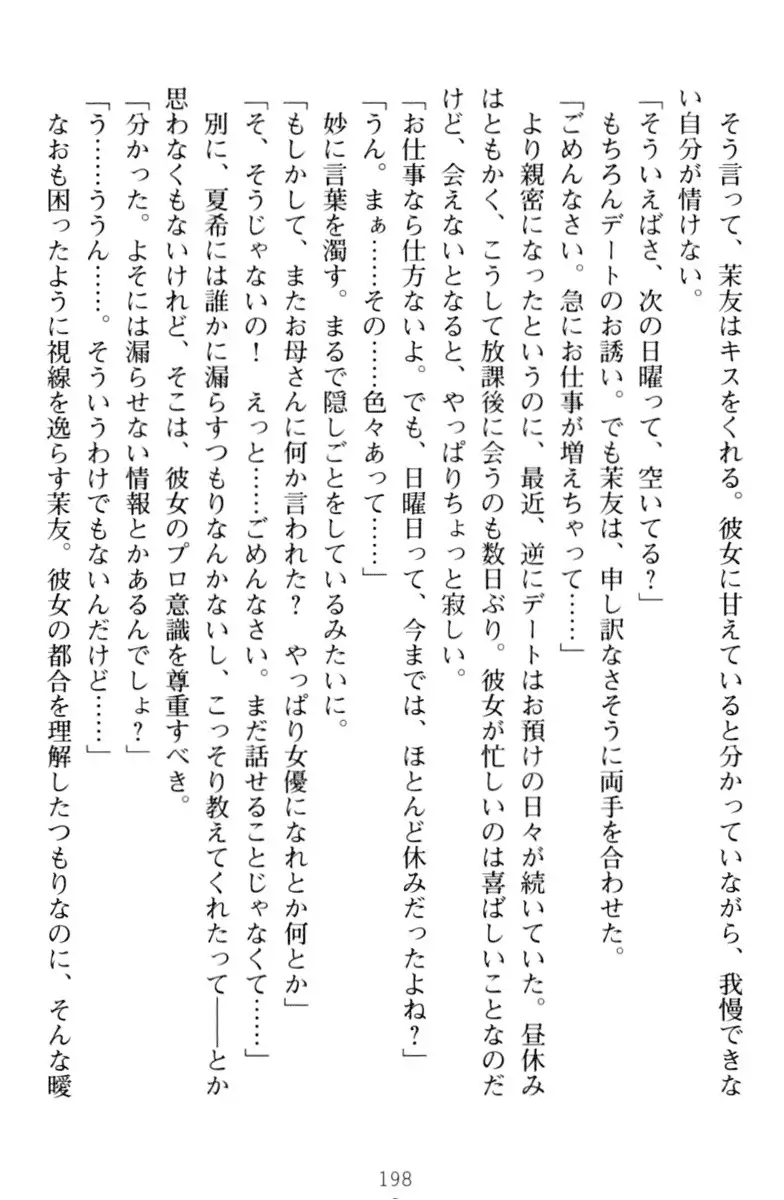 そう言って、茉友はキスをくれる。彼女に甘えていると分かっていながら、我慢できな
い自分が情けない。
「そういえばさ、次の日曜って、空いてる?」
もちろんデートのお誘い。でも茉友は、申し訳なさそうに両手を合わせた。
「ごめんなさい。急にお仕事が増えちゃって……」
より親密になったというのに、最近、逆にデートはお預けの日々が続いていた。昼休み
はともかく、こうして放課後に会うのも数日ぶり。彼女が忙しいのは喜ばしいことなのだ
けど、会えないとなると、やっぱりちょっと寂しい。
「お仕事なら仕方ないよ。でも、日曜日って、今までは、ほとんど休みだったよね?」
「うん。まぁ……その……色々あって……」
妙に言葉を濁す。まるで隠しごとをしているみたいに。
「もしかして、またお母さんに何か言われた? やっぱり女優になれとか何とか」
「そ、そうじゃないの! えっと……ごめんなさい。まだ話せることじゃなくて……」
別に、夏希には誰かに漏らすつもりなんかないし、こっそり教えてくれたって――とか
思わなくもないけれど、そこは、彼女のプロ意識を尊重すべき。
「分かった。よそには漏らせない情報とかあるんでしょ?」
「う……ううん……。そういうわけでもないんだけど……」
なおも困ったように視線を逸らす茉友。彼女の都合を理解したつもりなのに、そんな曖
198